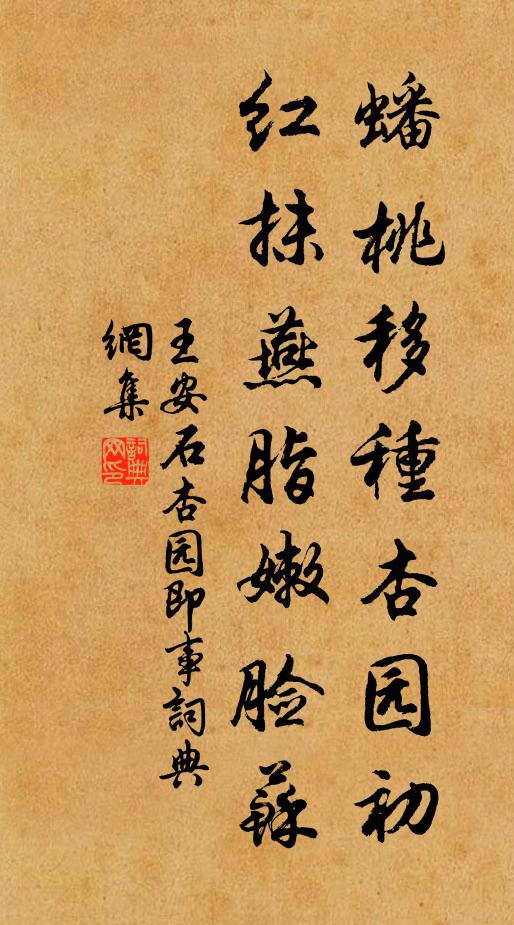 蟠桃移種杏园初
紅抹燕脂嫩臉蘇
王安石杏园即事詞典
網集
詞典
网印